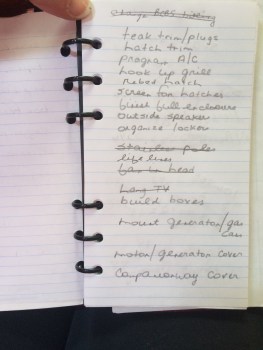 teak trim/plugs
hatch trim
program A/C
hook up grill
rebed hatch
screen for hatches
full enclosure
outside speaker
organize locker
stainless poles
life lines
fan in head
hang TV
build boxes
mount generator/gas
cans
motor/generator cover
companionway cover